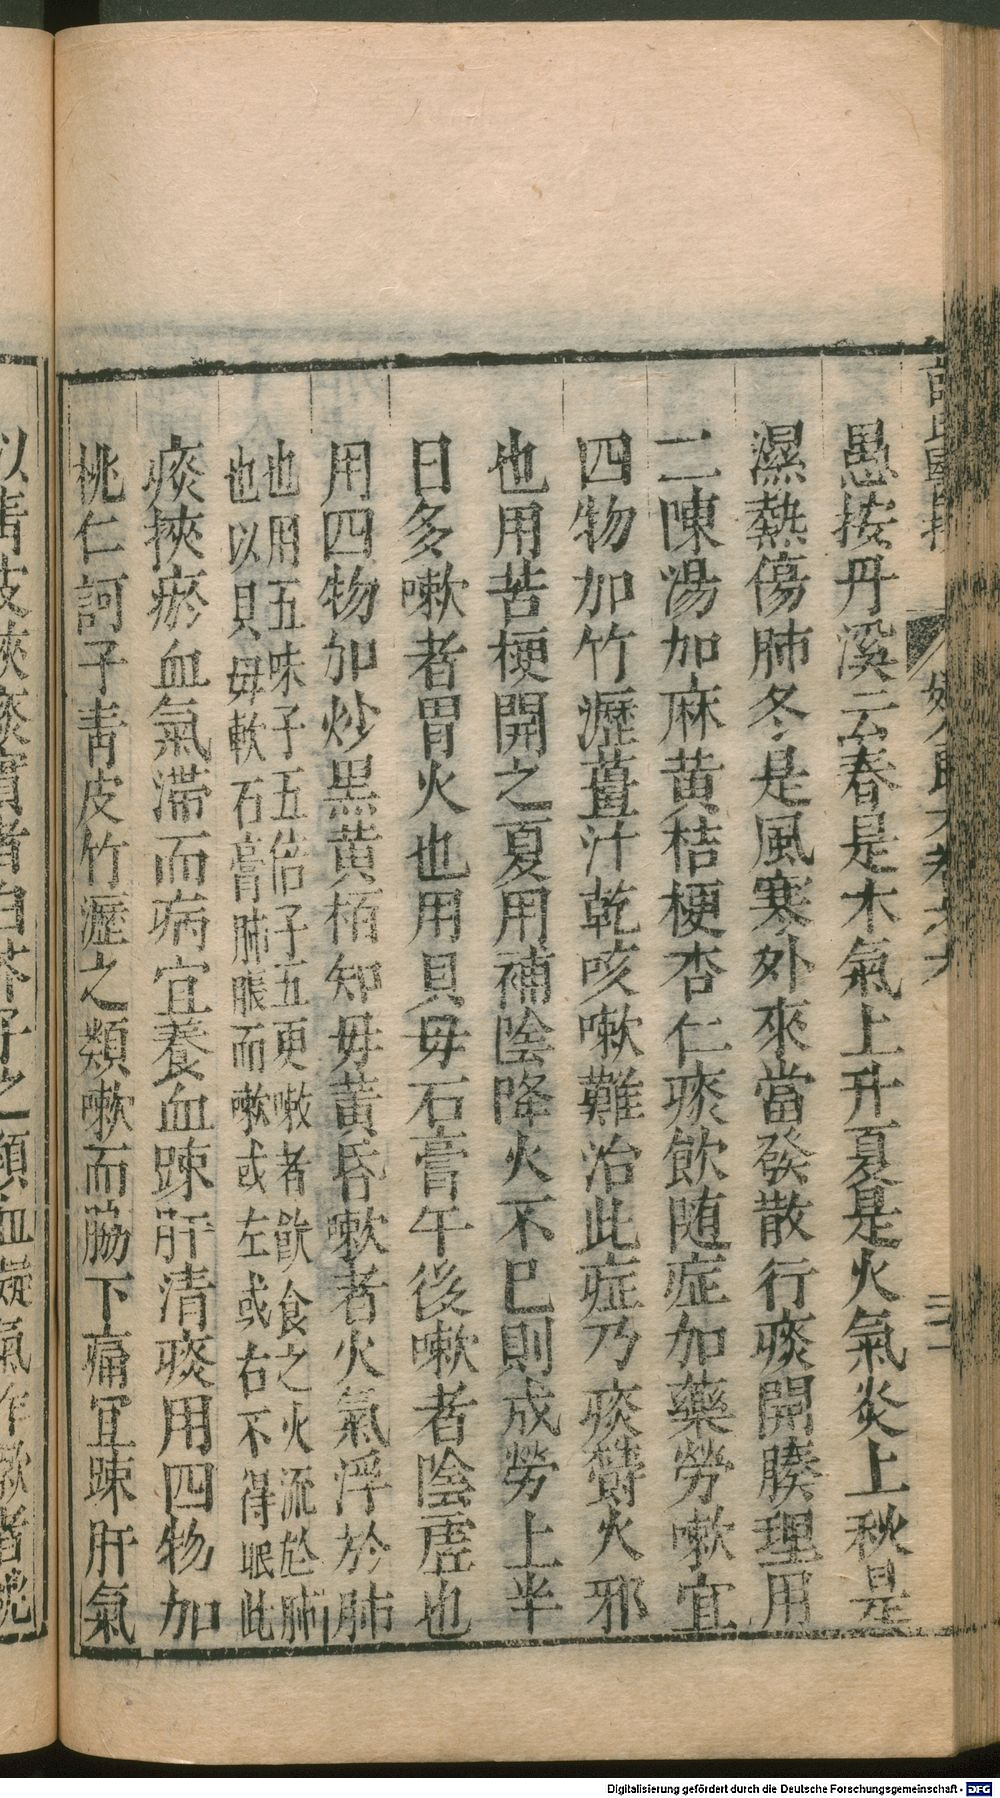 愚按丹溪云春是木氣上升夏是火氣炎上秋是
濕熱傷肺冬是風寒外來當發散行痰開腠理用
二陳湯加麻黄桔梗杏仁痰飲随症加藥勞嗽宜
四物加竹瀝薑汁乾咳嗽難治此症乃痰欝火邪
也用苦梗開之夏用補陰降火不已則成勞上半
日多嗽者胃火也用貝母石膏午後嗽者陰虛也
用四物加炒黒黄栢知母黄昏嗽者火氣浮於肺
也用五味子五倍子五更嗽者飲食之火流於肺
也以貝母軟石膏肺脹而嗽或左或右不得眠此
痰挾瘀血氣滯而病宜養血踈肝清痰用四物加
桃仁訶子靑皮竹瀝之類嗽而脇下痛宜踈肝氣
以靑皮挾痰實者白芥子之類血凝氣作嗽者
Digitalisierung gefördert durch die Deutsche Forschungsgemeinschaft - DFG